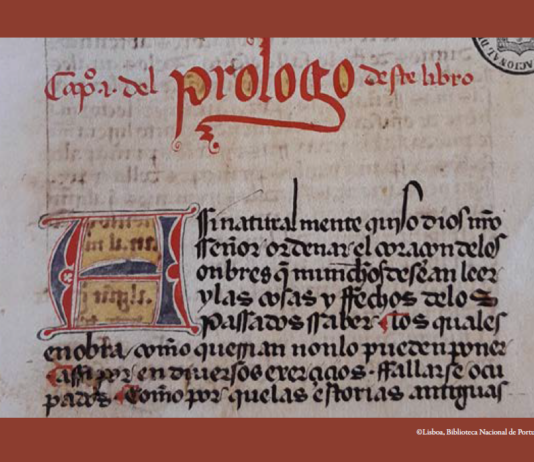 Capº. 1. del prologo deste libro
Assi natural mente quiso dios nr̃o
sseñor ordenar el coraçon delos
onbres q̃ munchos desean leer
y las cosas y ffechos delos
passados ssaber ¶los quales
en obra com̃o querrian non lo pueden poner
¶assi por en diuersos exerçiçios ffallarse ocu
pados ¶Com̃o por quelas estorias antiguas
©Lisboa, Biblioteca Nacional de Portu